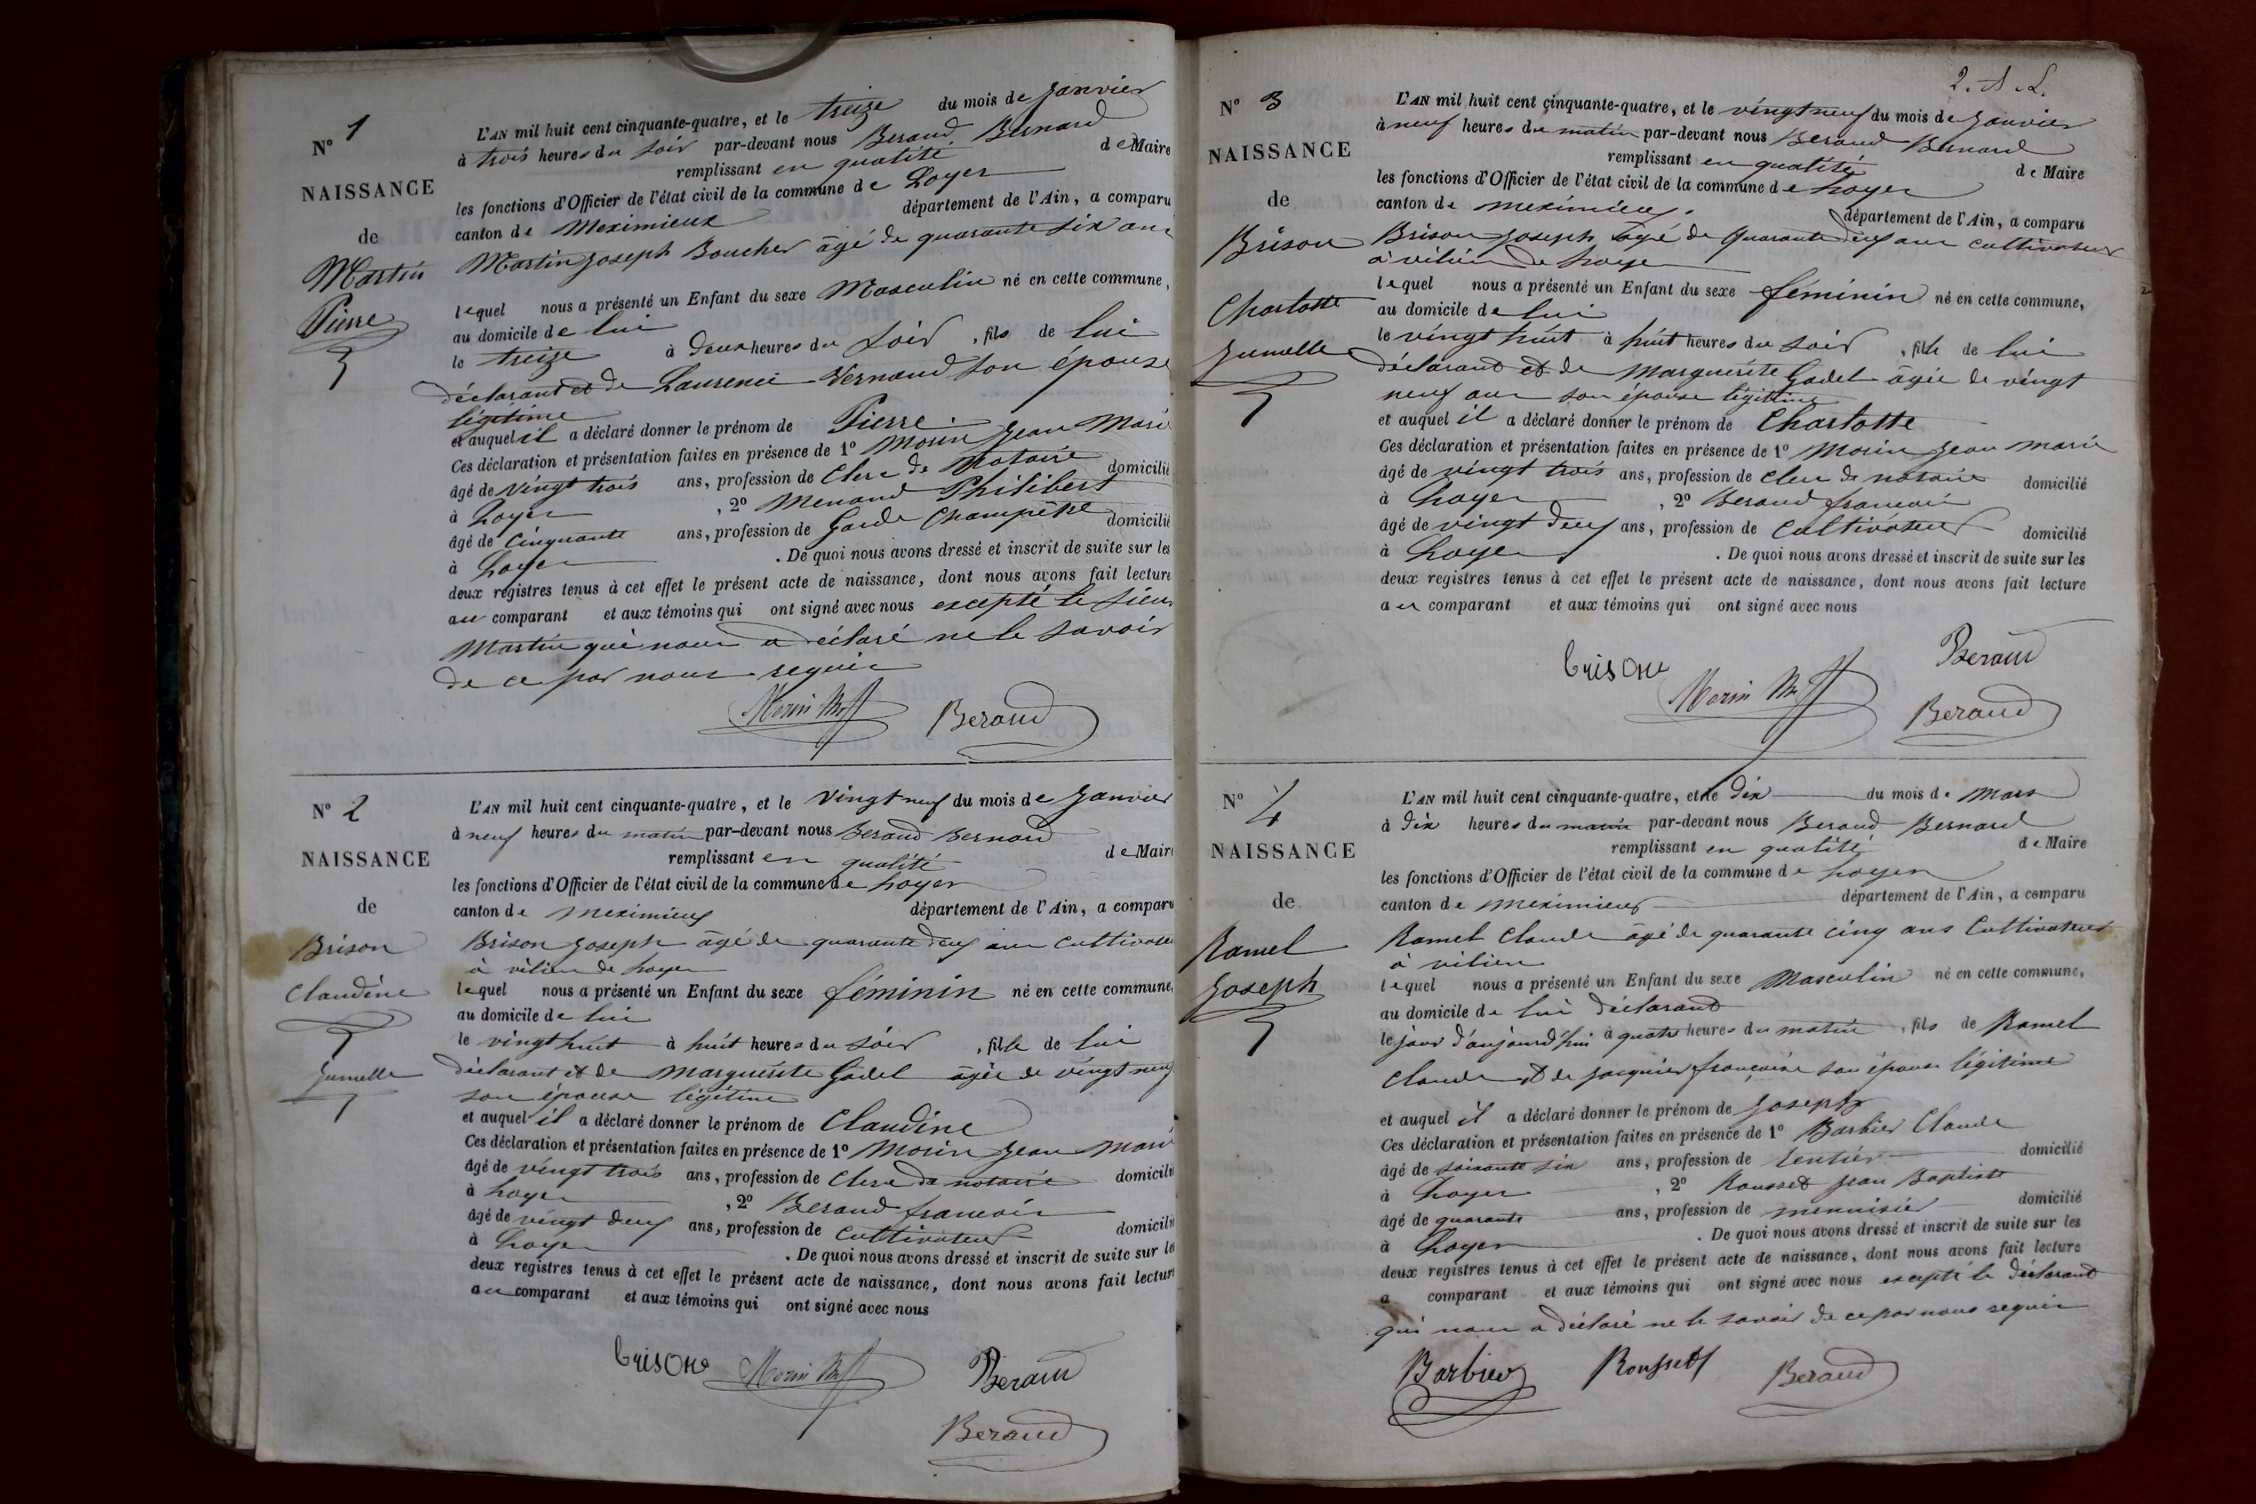 N° 1
NAISSANCE
de
Martin
Pierre
L'AN mil huit cent cinquante-quatre, et le treize du mois de janvier
à trois heures du soir par-devant nous Beraud Bernard
remplissant en qualité de Maire
les fonctions d'Officier de l'état civil de la commune de Loyes
canton de Meximieux département de l'Ain, a comparu
Martin Joseph Boucher âgé de quarante six ans
lequel nous a présenté un Enfant du sexe Masculin né en cette commune,
au domicile de lui
le treize à deux heures du soir, fils de lui
déclarant et de Laurence Vernaud son épouse
légitime
et auquel il a déclaré donner le prénom de Pierre.
Ces déclaration et présentation faites en présence de 1° Morin Jean Marie
âgé de vingt trois ans, profession de Clerc de Notaire domicilié
à Loyes, 2° Menand Philibert
âgé de cinquante ans, profession de Garde Champêtre domicilié
à Loyes. De quoi nous avons dressé et inscrit de suite sur les
deux registres tenus à cet effet le présent acte de naissance, dont nous avons fait lecture
au comparant et aux témoins qui ont signé avec nous excepté le sieur
Martin qui nous a déclaré ne le savoir
de ce par nous requis
Morin Beraud
N° 2
NAISSANCE
de
Brison
Claudine
Jumelle
L'AN mil huit cent cinquante-quatre, et le vingt neuf du mois de janvier
à neuf heures du matin par-devant nous Beraud Bernard
remplissant en qualité de Maire
les fonctions d'Officier de l'état civil de la commune de Loyes
canton de Meximieux département de l'Ain, a comparu
Brison Joseph âgé de quarante deux ans cultivateur
à vilieu de Loyes
lequel nous a présenté un Enfant du sexe féminin né en cette commune,
au domicile de lui
le vingt huit à huit heures du soir, fille de lui
déclarant et de Marguerite Gadel âgée de vingt neuf
son épouse légitime
et auquel il a déclaré donner le prénom de Claudine
Ces déclaration et présentation faites en présence de 1° Morin Jean Marie
âgé de vingt trois ans, profession de Clerc de notaire domicilié
à Loyes, 2° Beraud francois
âgé de vingt deux ans, profession de Cultivateur domicilié
à Loyes. De quoi nous avons dressé et inscrit de suite sur les
deux registres tenus à cet effet le présent acte de naissance, dont nous avons fait lecture
au comparant et aux témoins qui ont signé avec nous
brison Morin Beraud
Beraud
2.
N° 3
NAISSANCE
de
Brison
Charlotte
Jumelle
L'AN mil huit cent cinquante-quatre, et le vingt neuf du mois de janvier
à neuf heures du matin par-devant nous Beraud Bernard
remplissant en qualité de Maire
les fonctions d'Officier de l'état civil de la commune de Loyes
canton de Meximieux. département de l'Ain, a comparu
Brison Joseph âgé de quarante deux ans cultivateur
à vilieu de Loyes
lequel nous a présenté un Enfant du sexe féminin né en cette commune,
au domicile de lui
le vingt huit à huit heures du soir, fille de lui
déclarant et de Marguerite Gadel âgée de vingt
neuf ans son épouse légitime
et auquel il a déclaré donner le prénom de Charlotte
Ces déclaration et présentation faites en présence de 1° Morin Jean marie
âgé de vingt trois ans, profession de clerc de notaire domicilié
à Loyes, 2° Beraud francois
âgé de vingt deux ans, profession de Cultivateur domicilié
à Loyes. De quoi nous avons dressé et inscrit de suite sur les
deux registres tenus à cet effet le présent acte de naissance, dont nous avons fait lecture
au comparant et aux témoins qui ont signé avec nous
brison Morin Beraud
Beraud
N° 4
NAISSANCE
de
Ramel
Joseph
L'AN mil huit cent cinquante-quatre, et le dix du mois de Mars
à dix heures du matin par-devant nous Beraud Bernard
remplissant en qualité de Maire
les fonctions d'Officier de l'état civil de la commune de Loyes
canton de Meximieux département de l'Ain, a comparu
Ramel Claude âgé de quarante cinq ans Cultivateur
à vilieu
lequel nous a présenté un Enfant du sexe Masculin né en cette commune,
au domicile de lui déclarant
le jour d'aujourd'hui à quatre heures du matin, fils de Ramel
Claude et de Jacquier françoise son épouse légitime
et auquel il a déclaré donner le prénom de Joseph
Ces déclaration et présentation faites en présence de 1° Barbier Claude
âgé de soixante six ans, profession de rentier domicilié
à Loyes, 2° Rousset Jean Baptiste
âgé de quarante ans, profession de menuisier domicilié
à Loyes. De quoi nous avons dressé et inscrit de suite sur les
deux registres tenus à cet effet le présent acte de naissance, dont nous avons fait lecture
a comparant et aux témoins qui ont signé avec nous excepté le déclarant
qui nous a déclaré ne le savoir de ce par nous requis
Barbier Rousset Beraud